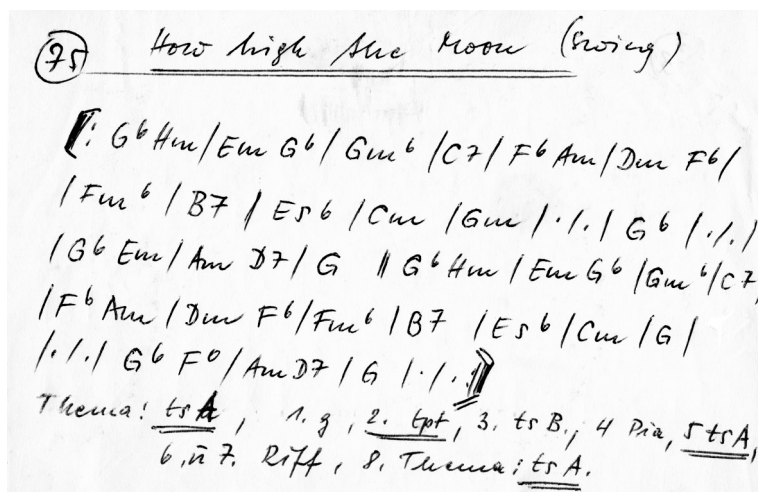 75 How high the Moon (Swing)
‖: G6 Hm / Em G6 / Gm6 / C7 / F6 Am / Dm F6 /
/ Fm6 / B7 / Es6 / Cm / Gm / ·/. / G6 / ·/. /
/ G6 Em / Am D7 / G ‖ G6 Hm / Em G6 / Gm6 / C7,
/ F6 Am / Dm F6 / Fm6 / B7 / Es6 / Cm / G /
/ ·/. / G6 F0 / Am D7 / G / ·/. :‖
Thema: tsA, 1. g, 2. tpt, 3. tsB., 4 Pia, 5 tsA,
6. ü 7. Riff, 8. Thema: tsA.